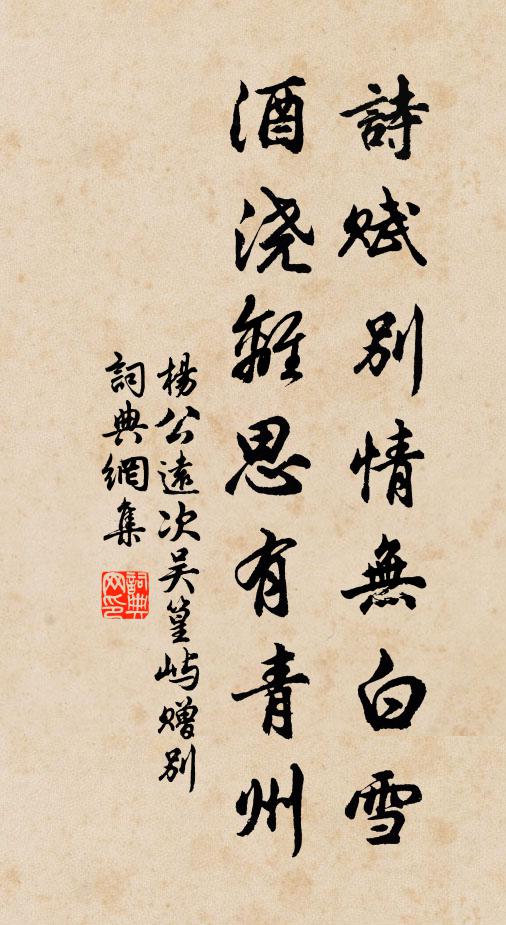 詩赋別情無白雪
酒浇離思有青州
楊公遠次吴篁屿赠别
詞典網集
詞典网印